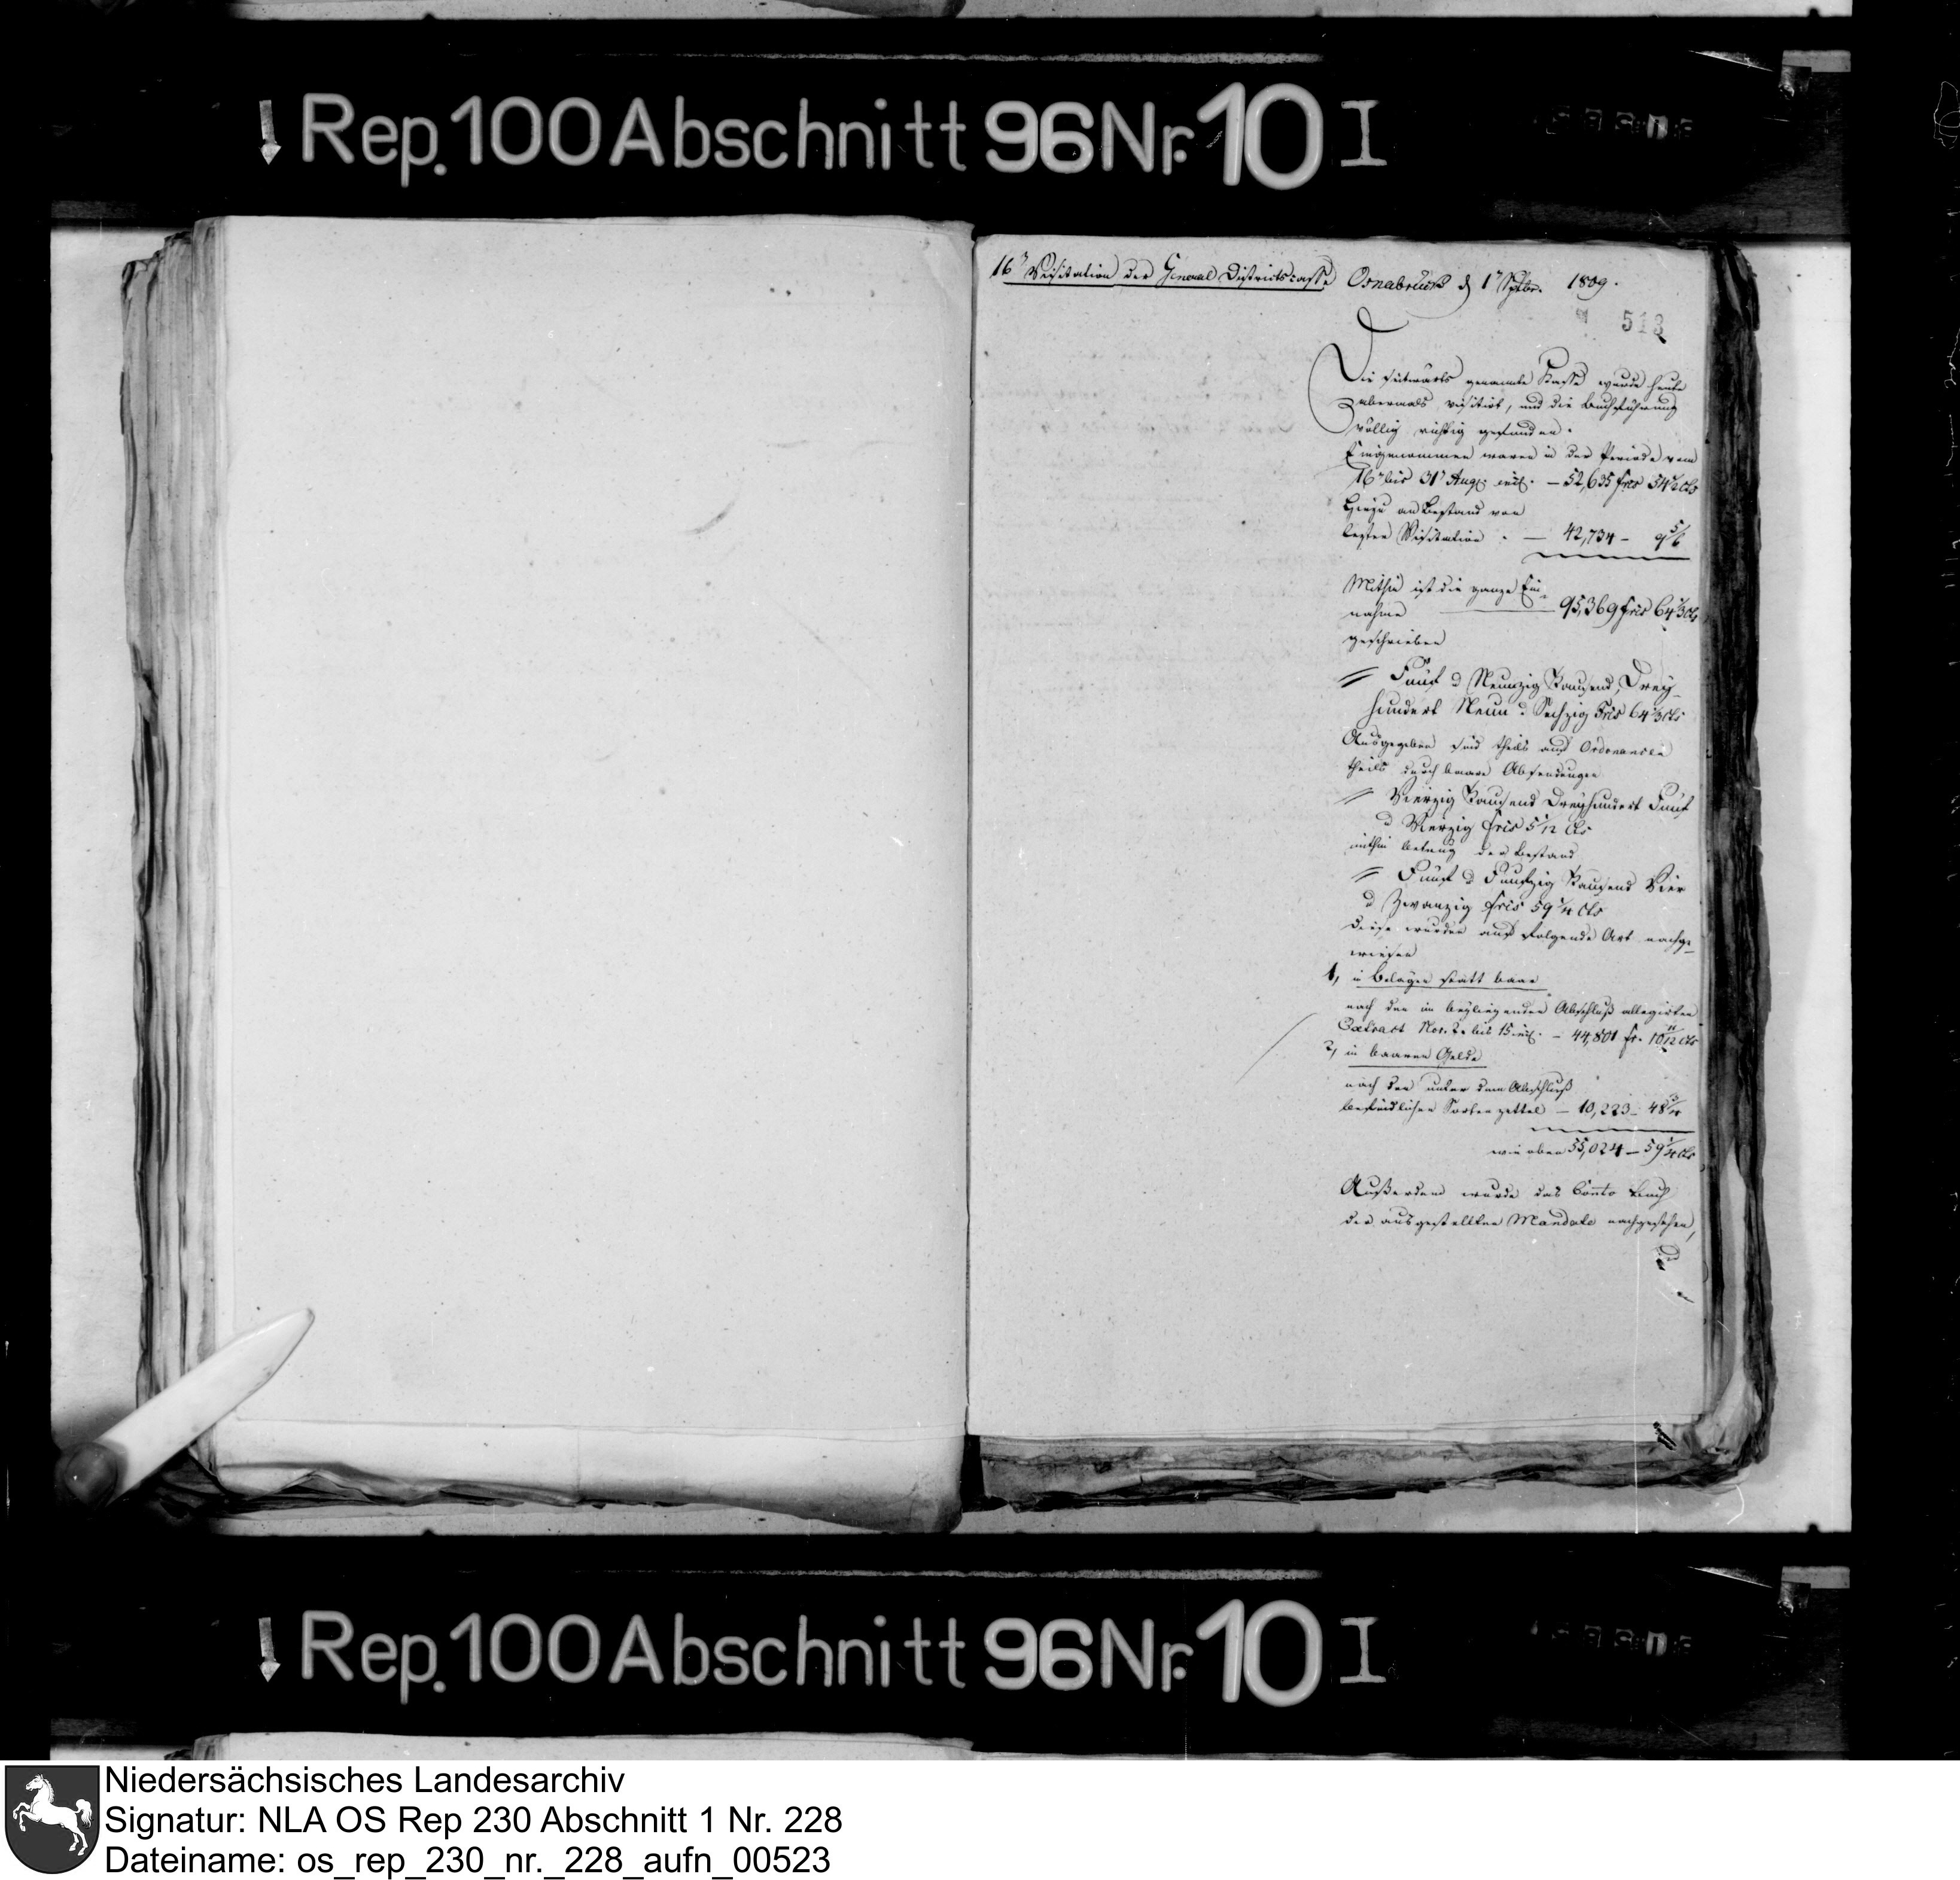 Rep. 100 Abschnitt 96 Nr. 10 I
16te Visitation der General Districtscasse Osnabrück d 1t Sptbr. 1809.
513
Die seitwärts genannte Kasse wurde heute
abermals visitirt, und die Buchführung
völlig richtig gefunden.
Eingenommen waren in der Periode vom
16t bis 31t Aug. incl. — 52,635 frcs 54 1/2 cts
Hiezu an Bestand von
lezter Visitation — 42,734 — 9 5/6
Mithin ist die ganze Ein-
nahme — 95,369 frcs 64 1/3 cts
geschrieben
Fünf u Neunzig Tausend, Drey-
hundert Neun u. Sechzig frcs 64 1/3 cts
Ausgegeben sind theils auf Ordonancen
theils durch baare Absendungen
Vierzig Tausend Dreyhundert Fünf
u Vierzig frcs 5 1/12 cts
mithin betrug der Bestand
Fünf u Funfzig Tausend Vier
u Zwanzig frcs 59 1/4 cts
diese wurden auf folgende Art nachge-
wiesen
1, in Belägen statt baar
nach den im beyliegenden Abschluß allegirten
Extract Nor. 2 bis 15 incl. — 44,801 fr. 10 11/12 cts
2, in baarem Gelde
nach den unter dem Abschluß
befindlichen Sortenzettel — 10,223 — 48
wie oben 55,024 — 59 1/4 cts
Außerdem wurde das Conto Buch
der ausgestellten Mandate nachgesehen,
Rep. 100 Abschnitt 96 Nr. 10 I
Niedersächsisches Landesarchiv
Signatur: NLA OS Rep 230 Abschnitt 1 Nr. 228
Dateiname: os_rep_230_nr._228_aufn_00523